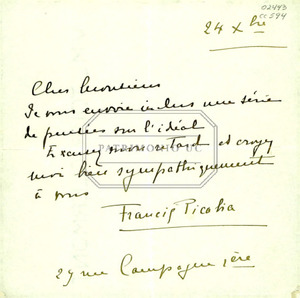 02493
cc594
24 Xbre
Cher Monsieur
Je vous envoie inclus une série
de pensées sur l'idéal
Excusez mon retard et croyez
moi bien sympathiquement
à vous
PATRIMONIO UC
Francis Picabia
29 rue Campagne 1ère